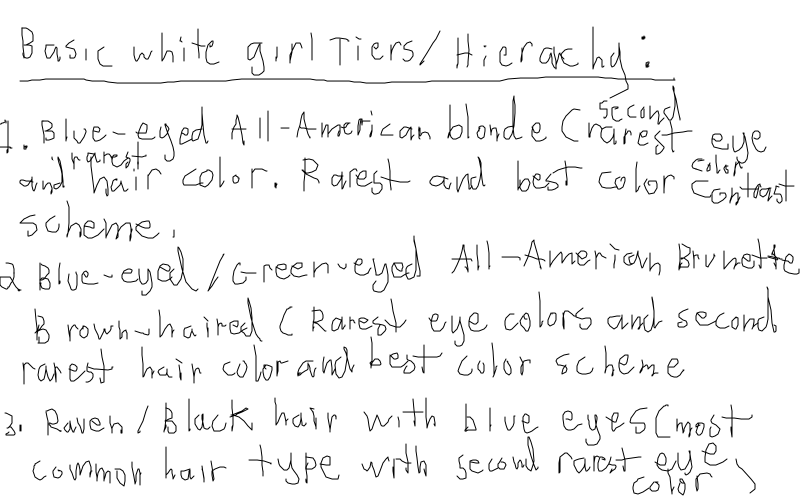 Basic white girl Tiers/Hierachy:
1. Blue-eyed All-American blonde (second rarest eye
and rarest hair color. Rarest and best color color contrast
scheme.
2 Blue-eyed/Green-eyed All-American Brunette
Brown-haired (Rarest eye colors and second
rarest hair color and best color scheme
3. Raven/Black hair with blue eyes (most
common hair type with second rarest eye
color)